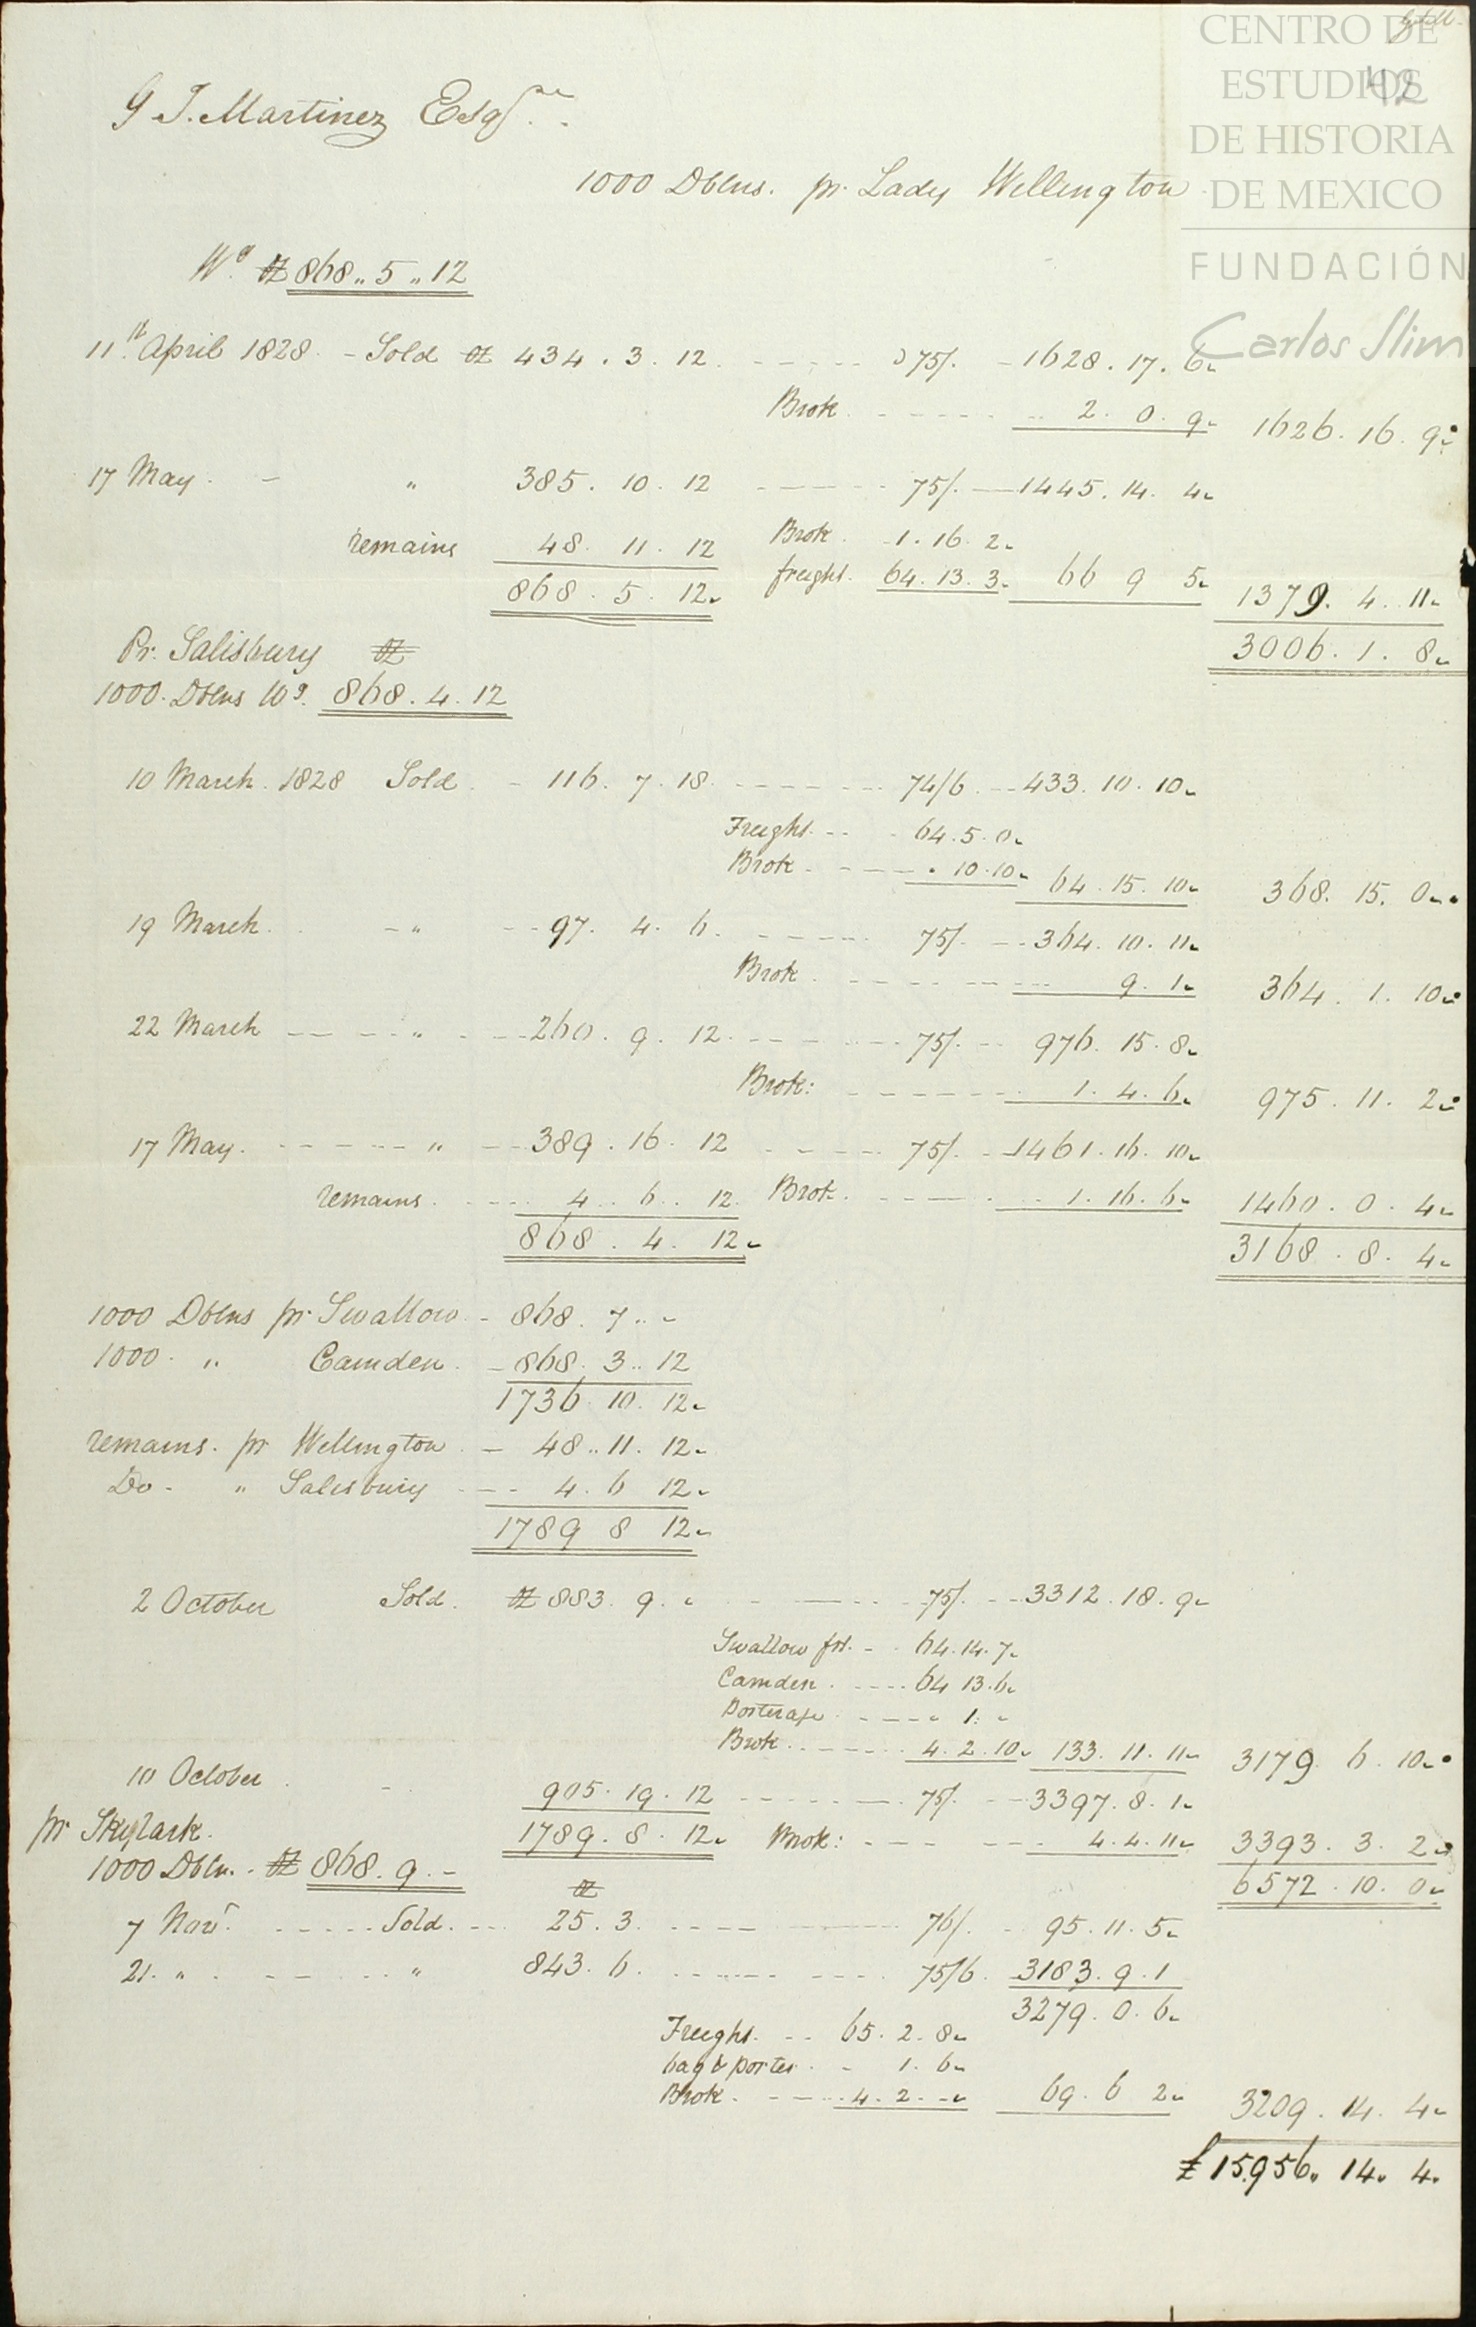 CENTRO DE
ESTUDIOS
DE HISTORIA
DE MEXICO
FUNDACIÓN
Carlos Slim
42
G J. Martinez Esqre
1000 Dblns. pr. Lady Wellington
Wg Oz 868,, 5,, 12
11th April 1828 - Sold Oz 434. 3. 12. 75/. 1628. 17. 6
Brok 2. 0. 9 1626. 16. 9
17 May - " 385. 10. 12 75/. 1445. 14. 4
remains 48. 11. 12 Brok. 1. 16. 2
868. 5. 12 freight. 64. 13. 3 66 9 5 1379. 4. 11
3006. 1. 8
Pr. Salisbury Oz
1000 Dblns Wg. 868. 4. 12
10 March. 1828 Sold - 116. 7. 18 74/6 433. 10. 10
Freight 64. 5. 0
Brok. 10. 10 64. 15. 10 368. 15. 0
19 March. " 97. 4. 6. 75/. 364. 10. 11
Brok. 9. 1 364. 1. 10
22 March " 260. 9. 12. 75/. 976. 15. 8
Brok: 1. 4. 6 975. 11. 2
17 May. " 389. 16. 12 75/. 1461. 16. 10
remains. 4. 6. 12 Brok. 1. 16. 6 1460. 0. 4
868. 4. 12 3168. 8. 4
1000 Dblns pr Swallow - 868. 7. -
1000. " Camden. - 868. 3. 12
1736. 10. 12
remains. pr Wellington - 48. 11. 12
Do - " Salisbury 4. 6 12
1789 8 12
2 October Sold. Oz 883. 9. 75/. 3312. 18. 9
Swallow frt. 64. 14. 7
Camden. 64 13. 6
Porterage 1. -
Brok. 4. 2. 10 133. 11. 11 3179. 6. 10
10 October. 905. 19. 12 75/. 3397. 8. 1
pr Skylark. 1789. 8. 12 Brok: 4. 4. 11 3393. 3. 2
1000 Dbln. Oz 868. 9. - 6572. 10. 0
Oz
7 Novr. Sold. 25. 3. 76/. 95. 11. 5
21. " " 843. 6. 75/6. 3183. 9. 1
3279. 0. 6
Freight. 65. 2. 8
bag & porter. 1. 6
Brok. 4. 2. - 69. 6 2 3209. 14. 4
£15.956. 14. 4.